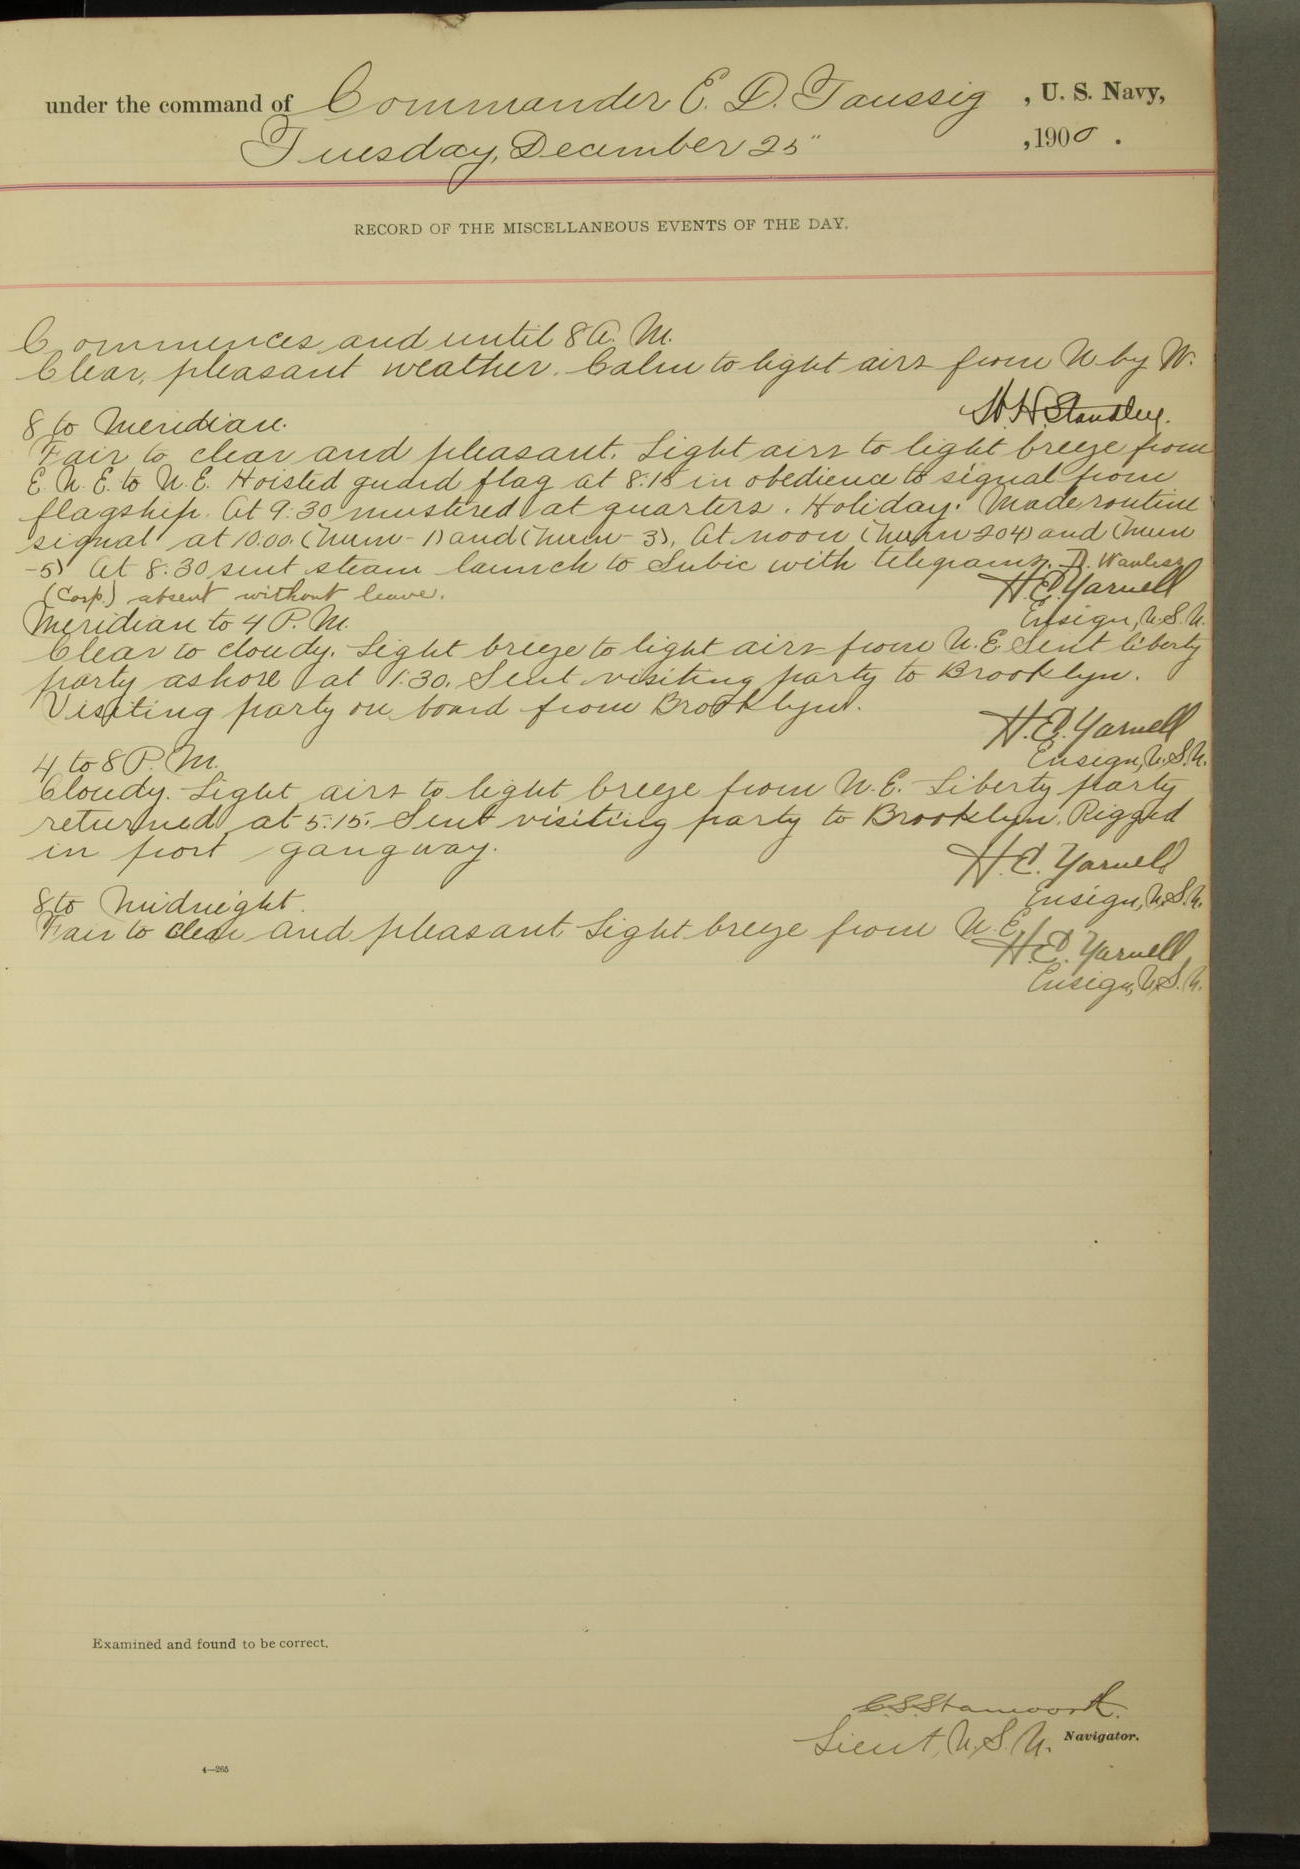 under the command of Commander E. D. Taussig, U. S. Navy,
Tuesday, December 25", 1900.
RECORD OF THE MISCELLANEOUS EVENTS OF THE DAY.
Commences and until 8 A. M.
Clear, pleasant weather. Calm to light airs from N by W.
W H Standley.
8 to Meridian.
Fair to clear and pleasant. Light airs to light breeze from
E. N. E. to N. E. Hoisted guard flag at 8:15 in obedience to signal from
flagship. At 9:30 mustered at quarters. Holiday. Made routine
signal at 10.00 (Num - 1) and (Num - 3). At noon (Num 204) and (Num
-5) At 8:30 sent steam launch to Subic with telegrams. D. Wanless
(Corp.) absent without leave.
H. E. Yarnell
Ensign, U. S. N.
Meridian to 4 P. M.
Clear to cloudy. Light breeze to light airs from N. E. Sent liberty
party ashore at 1:30. Sent visiting party to Brooklyn.
Visiting party on board from Brooklyn.
H. E. Yarnell
Ensign, U. S. N.
4 to 8 P. M.
Cloudy. Light airs to light breeze from N. E. Liberty party
returned at 5:15. Sent visiting party to Brooklyn. Rigged
in port gangway.
H. E. Yarnell
Ensign, U. S. N.
8 to Midnight.
Fair to clear and pleasant. Light breeze from N. E.
H. E. Yarnell
Ensign, U. S. N.
Examined and found to be correct.
C. S. Stanworth.
Lieut, U. S. N. Navigator.
4—265